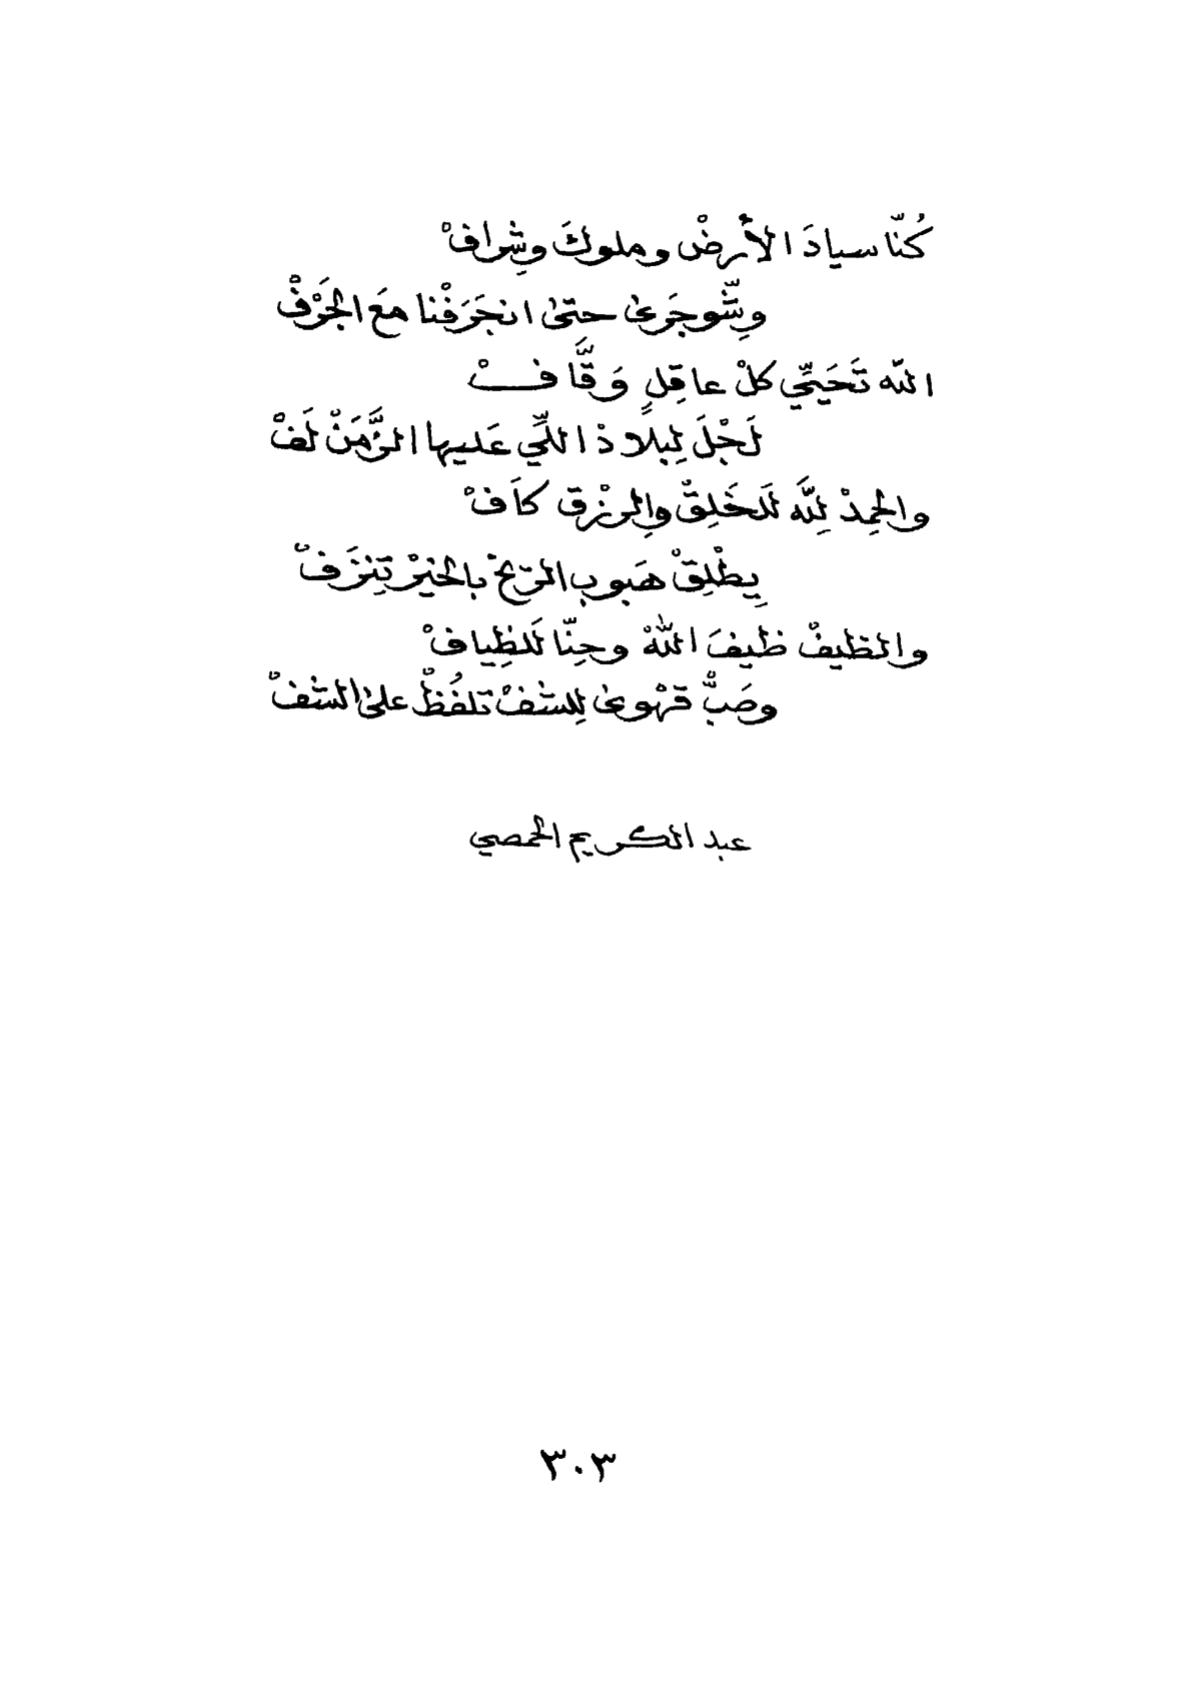 كُنّا سيادَ الأرضْ وملوكَ وشِرافْ
وِشّوجَرىٰ حتىٰ انجَرَفْنا مَعَ الجَرْفْ
اللّه تَحَيِّي كلْ عاقِلٍ وَقَّافْ
لَجْلَ لِبلادْ اللّي عَليها الزَّمَنْ لَفْ
والحَمِدْ لِلَّه لَلخَلِقْ وِالرْزق كاَفْ
يِطْلِقْ هَبوب الرّيحْ بالخيْر تِنزَفْ
والظيفْ ظيفَ اللّٰهْ وحِنّا لَلظِيافْ
وصَبُّ قَهْوىٰ لِلشفْ تلفُظْ علىٰ الشفْ
عبد الكريم الحمصي
٣٠٣